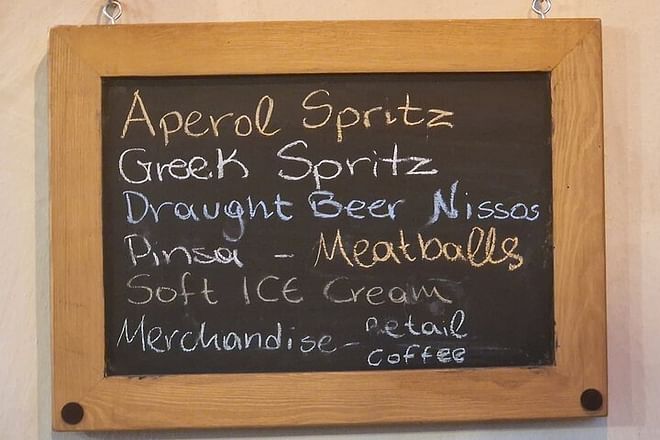 Aperol Spritz
Greek Spritz
Draught Beer Nissos
Pinsa - Meatballs
Soft ICE Cream
Merchandise - Retail
coffee